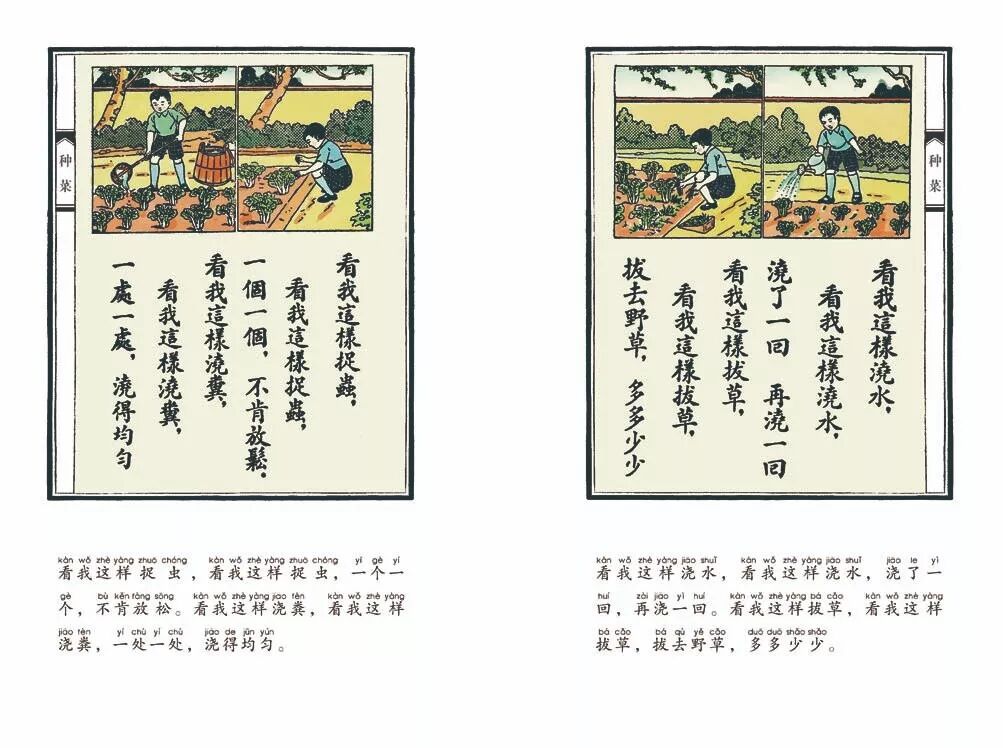 种菜
看我這樣捉蟲，
看我這樣捉蟲，
一個一個，不肯放鬆．
看我這樣澆糞，
看我這樣澆糞，
一處一處，澆得均勻
kàn wǒ zhè yàng zhuō chóng kàn wǒ zhè yàng zhuō chóng yí gè yí
看我这样捉虫，看我这样捉虫，一个一
gè bù kěn fàng sōng kàn wǒ zhè yàng jiāo fèn kàn wǒ zhè yàng
个，不肯放松。看我这样浇粪，看我这样
jiāo fèn yí chù yí chù jiāo de jūn yún
浇粪，一处一处，浇得均匀。
种菜
看我這樣澆水，
看我這樣澆水，
澆了一回 再澆一回
看我這樣拔草，
看我這樣拔草，
拔去野草，多多少少
kàn wǒ zhè yàng jiāo shuǐ kàn wǒ zhè yàng jiāo shuǐ jiāo le yì
看我这样浇水，看我这样浇水，浇了一
huí zài jiāo yì huí kàn wǒ zhè yàng bá cǎo kàn wǒ zhè yàng
回，再浇一回。看我这样拔草，看我这样
bá cǎo bá qù yě cǎo duō duō shǎo shǎo
拔草，拔去野草，多多少少。